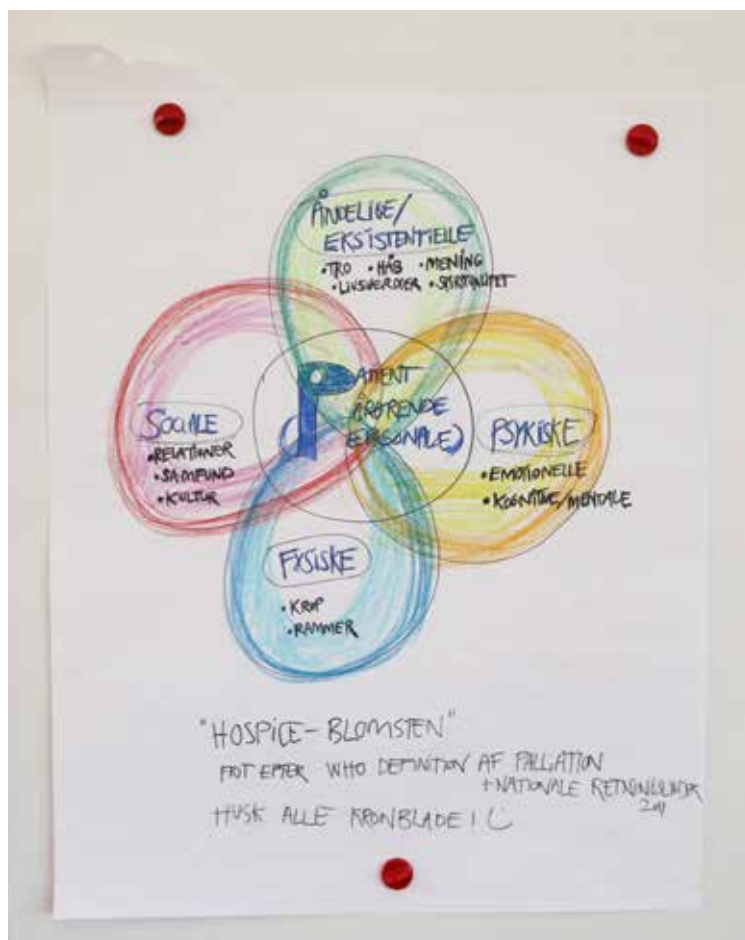 ÅNDELIGE/
EKSISTENTIELLE
•TRO •HÅB •MENING
•LIVSVÆRDIER •SPIRITUALITET
SOCIALE
•RELATIONER
•SAMFUND
•KULTUR
PATIENT
(PÅRØRENDE
PERSONALE)
PSYKISKE
•EMOTIONELLE
•KOGNITIVE/MENTALE
FYSISKE
•KROP
•RAMMER
"HOSPICE-BLOMSTEN"
EFTER WHO DEFINITION AF PALLIATION
+NATIONALE
HUSK ALLE KRONBLADE!